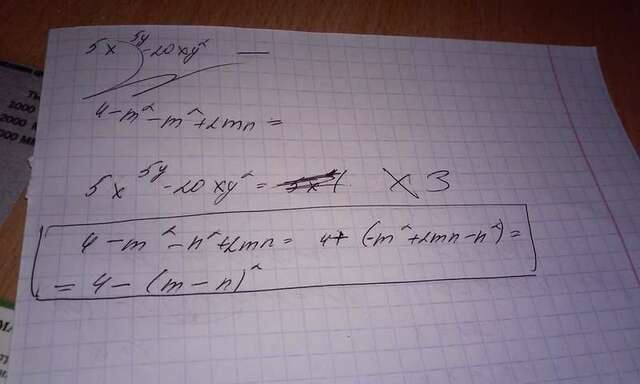 5x^5y - 20xy² —
4 - m² - m² + 2mn =
5x^5y - 20xy² = X3
4 - m² - n² + 2mn = 4 + (-m² + 2mn - n²) =
= 4 - (m - n)²
1000
2000